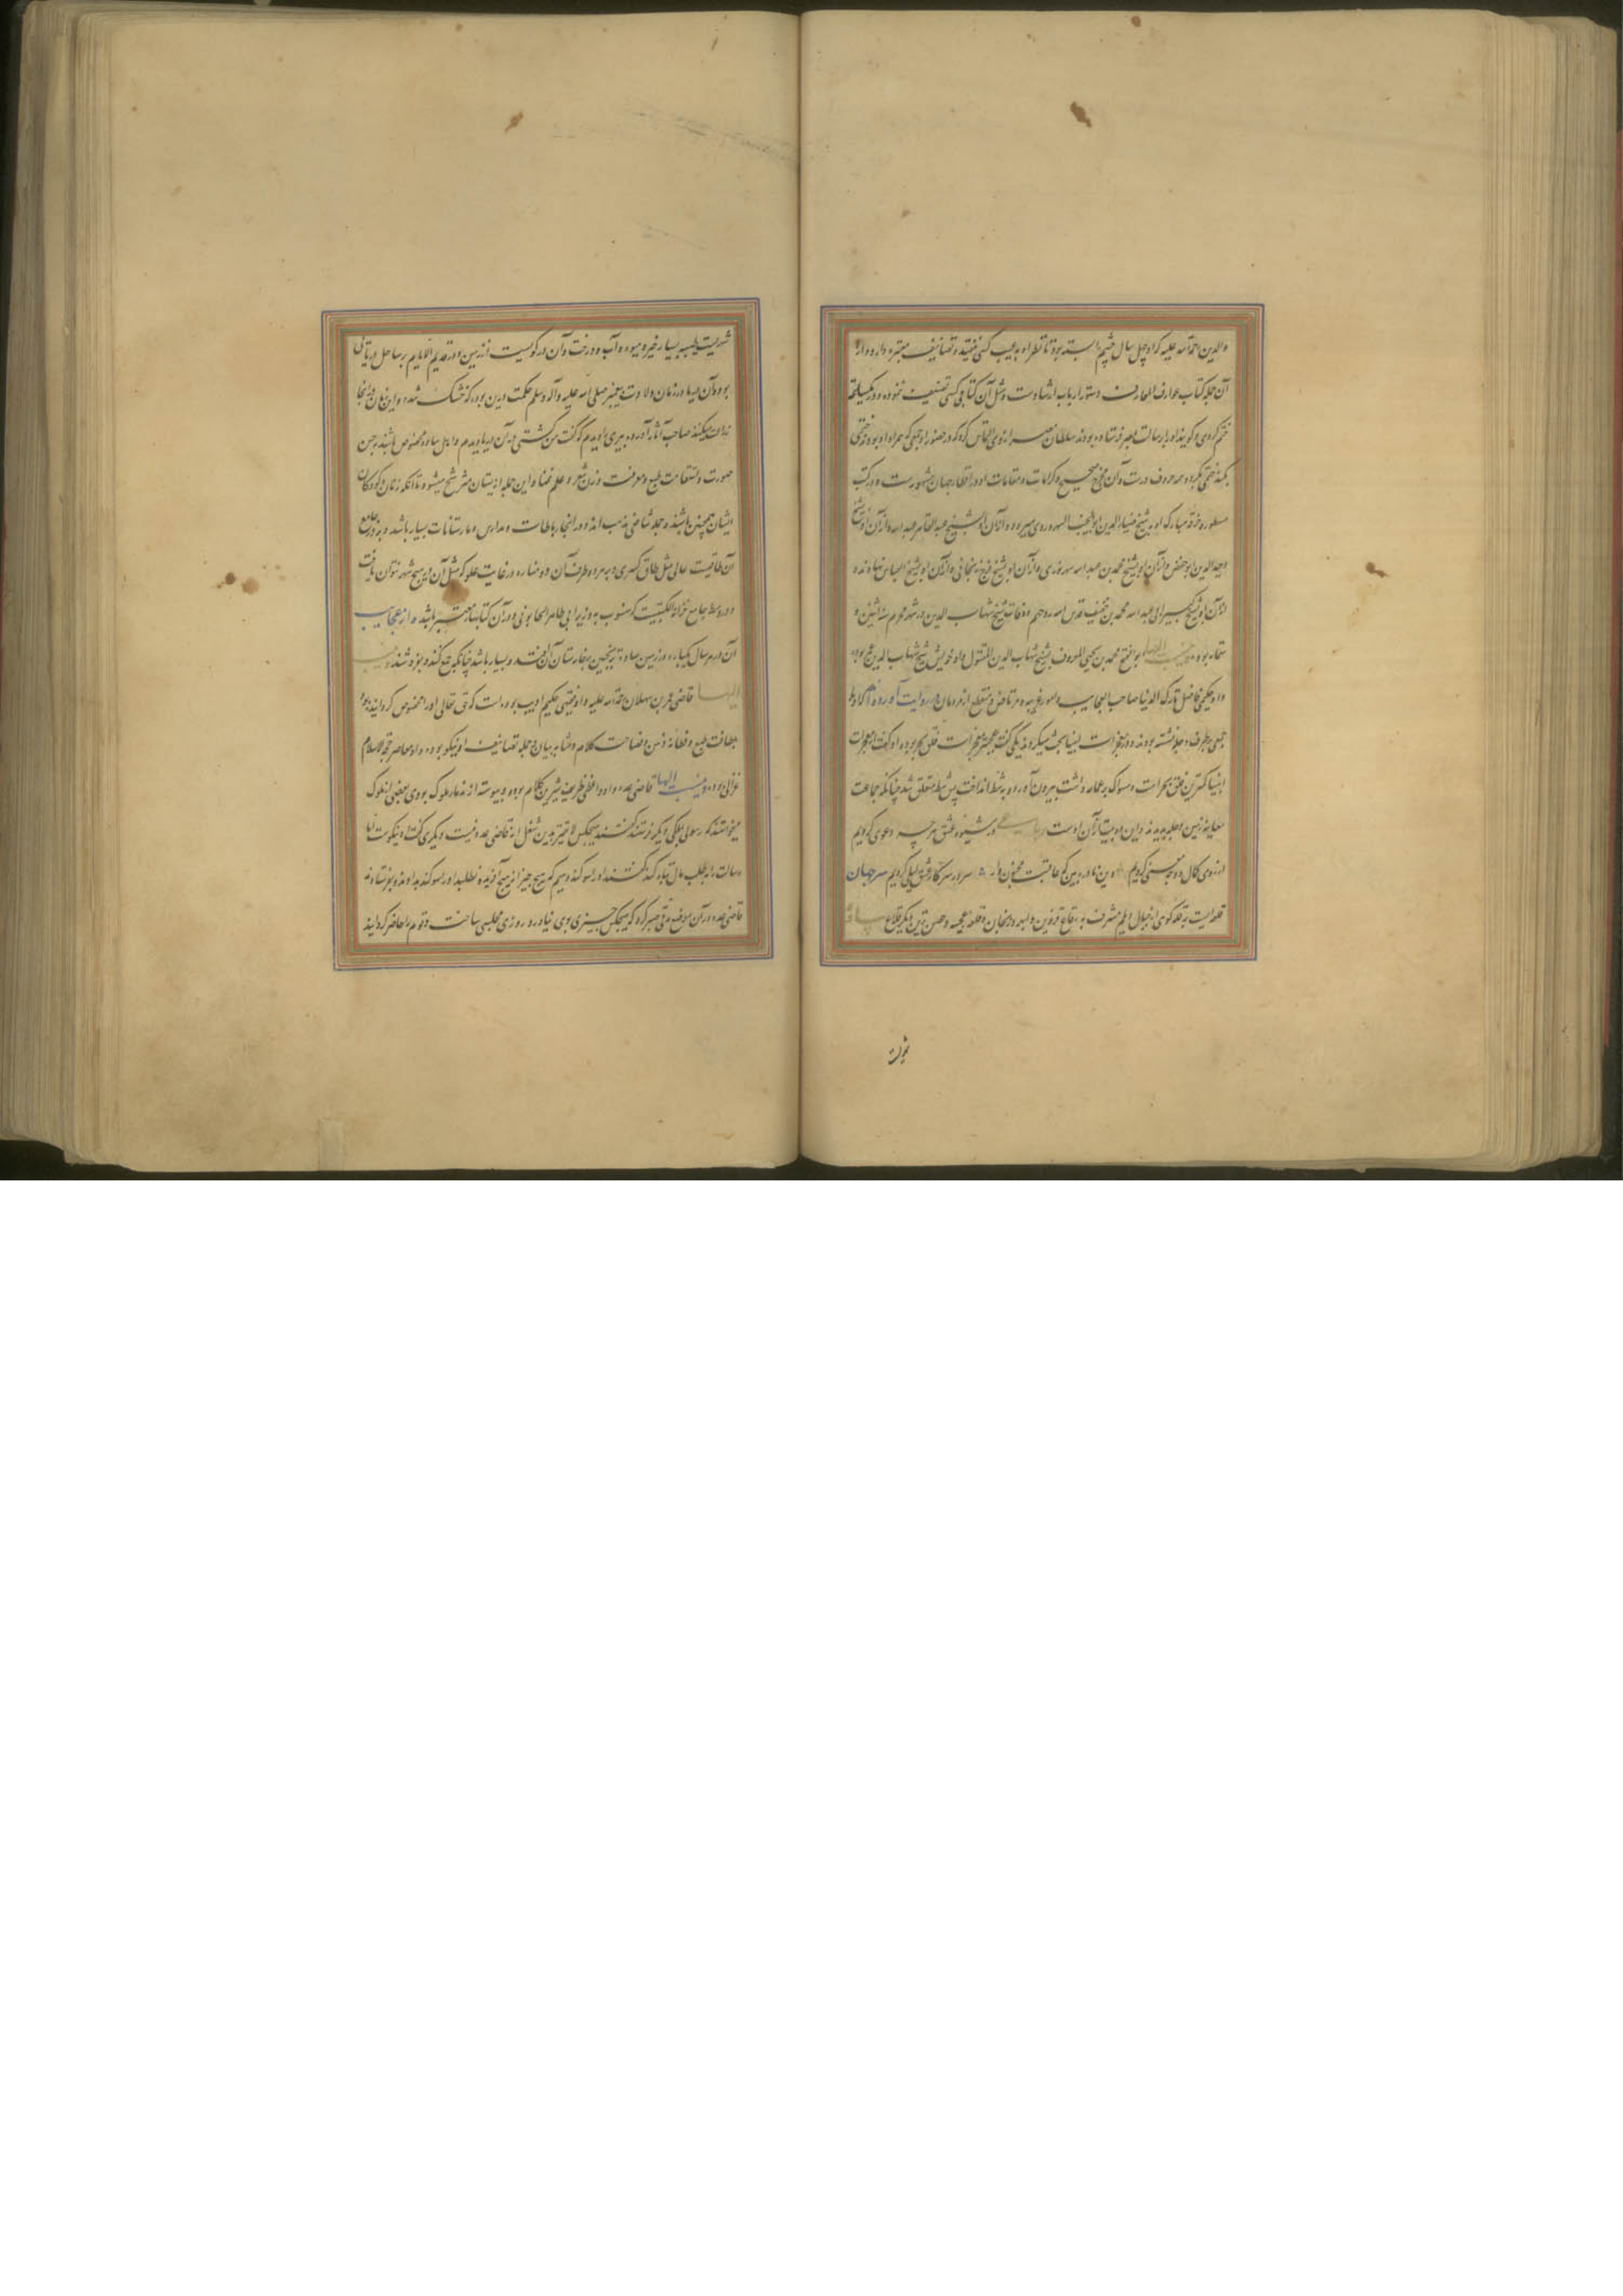 والدین رحمة الله علیه که او چهل سال چشم بسته بود تا نظر او بر عیب کسی نیفتد و تصانیف معتبره دارد و از
آن جمله کتاب عوارف المعارف دستور ارباب ارشادست و مثل آن کتابی کسی تصنیف ننموده و در یکساعت
ختم کردی و گویند او را برسالت بمصر فرستاده بودند سلطان مصر از وی التماس کرد که در حضور او جمعی که همراه او بودند ختمی
بکند ختمی بکرد همه حروف درست و آن مخرج صحیح و کرامات و مقامات او در اقطار جهان مشهورست و در کتب
مسطور و خرقه مبارک او به شیخ ضیاء الدین ابو نجیب السهروردی میرسد و از آن او بشیخ عبد القاهر عبد الله و از آن او بشیخ
وجیه الدین ابو حفص و از آن او بشیخ محمد بن عبد الله سهروردی و از آن او بشیخ فرج زنجانی و از آن او بشیخ ابو العباس نهاوندی
و از آن او بشیخ کبیر ابی عبد الله محمد بن خفیف قدس الله روحهم و وفات شیخ شهاب الدین در شهر محرم سنه اثنین و
ستمایه بود و ینسب الیها ابو الفتح محمد بن یحیی المعروف بشیخ شهاب الدین المقتول و او خویش شیخ شهاب الدین عمر بود
و او حکیمی فاضل تارک الدنیا صاحب العجایب و امور غریبه و مرتاض و منقطع از مردمان در روایت آورده‌اند که او با
جمعی بر طرف دجله نشسته بودند و در معجزات انبیا بحث میکردند یکی گفت عجبتر معجزات فلق بحر بود و او گفت از معجزات
انبیا کمترین فلق بحر است و مسواک بر عمامه داشت بیرون آورد و به شط انداخت پس شط منفلق شد چنانکه جماعت
معاینه زمین دجله بدیدند و این دو بیت از آن اوست رباعی در شیوه عشق هر چه دعوی کردیم
از روی کمال و حسن کردیم وین نادره بین که عاقبت مجنون وار سر در سر کار عشق لیلی کردیم سرجهان
قلعه‌ایست بر قله کوهی از جبال دیلم مشرف به بقاع قزوین و ابهر و زنجان و قلعه عجیبه و حصن‌ترین دیگر قلاع ساوه
شهریست
شهریست طیبه بسیار خیر و میوه و آب و درخت و آن در کوسیت از زمین و در قدیم الایام بر ساحل دریائی
بوده و آن دریا در زمان ولادت پیغمبر صلی الله علیه و آله و سلم حکمت درین بود که خشک شد و این زمان در آنجا
زراعت میکنند صاحب آثار آورده پیری را دیدم که گفت من کشتی در آن دریا دیدم و اهل ساوه مخصوص باشند بحسن
صورت و استقامت طبع و معرفت وزن شعر و علم غنا و این جمله از ایشان مترشح میشود تا آنکه زنان و کودکان
ایشان همچنین باشند و جمله شافعی مذهب اند و در آنجا رباطات و مدارس و مارستانات بسیار باشد و بر در جامع
آن طاقیست عالی مثل طاق کسری و بر هر دو طرف آن دو مناره در غایت علو که مثل آن در هیچ شهر نتوان یافت
و در وسط جامع خزانه الکتبیست که منسوب به وزیر ابی طاهر الخاتونی و در آن کتابها معتبر باشد و از عجایب
آن در هر سال یکبار در زمین ساوه ترنجبین بر خارستان آن افتد و بسیار باشد چنانکه جمع کنند و بفروشند و ینسب
الیها قاضی عمر بن سهلان رحمة الله علیه و او فقیهی حکیم ادیب بوده است که حق تعالی او را مخصوص گردانیده بود
بلطافت طبع و فطانه ذهن و فصاحت کلام و متانه بیان و جمله تصانیف او نیکو بوده و او معاصر حجة الاسلام
غزالی بوده و ینسب الیها قاضی عمده و او واعظی ظریف شیرین کلام بوده و پیوسته از ندماء ملوک بودی بعضی از ملوک
میخواستند که رسولی بملکی دیگر فرستند گفتند هیچکس لایقتر بدین شغل از قاضی عمده نیست و دیگری گفت او نیکوست اما
رسالت را بطلب مال تباه کند گفتند او را سوگند دهیم که هیچ چیز از هیچ آفریده نطلبد او را سوگند بدادند و بفرستادند
قاضی عمده در آن موضع مدتی صبر کرد که هیچکس چیزی بوی نیاورد روزی مجلسی ساخت و قوم را حاضر گردانید